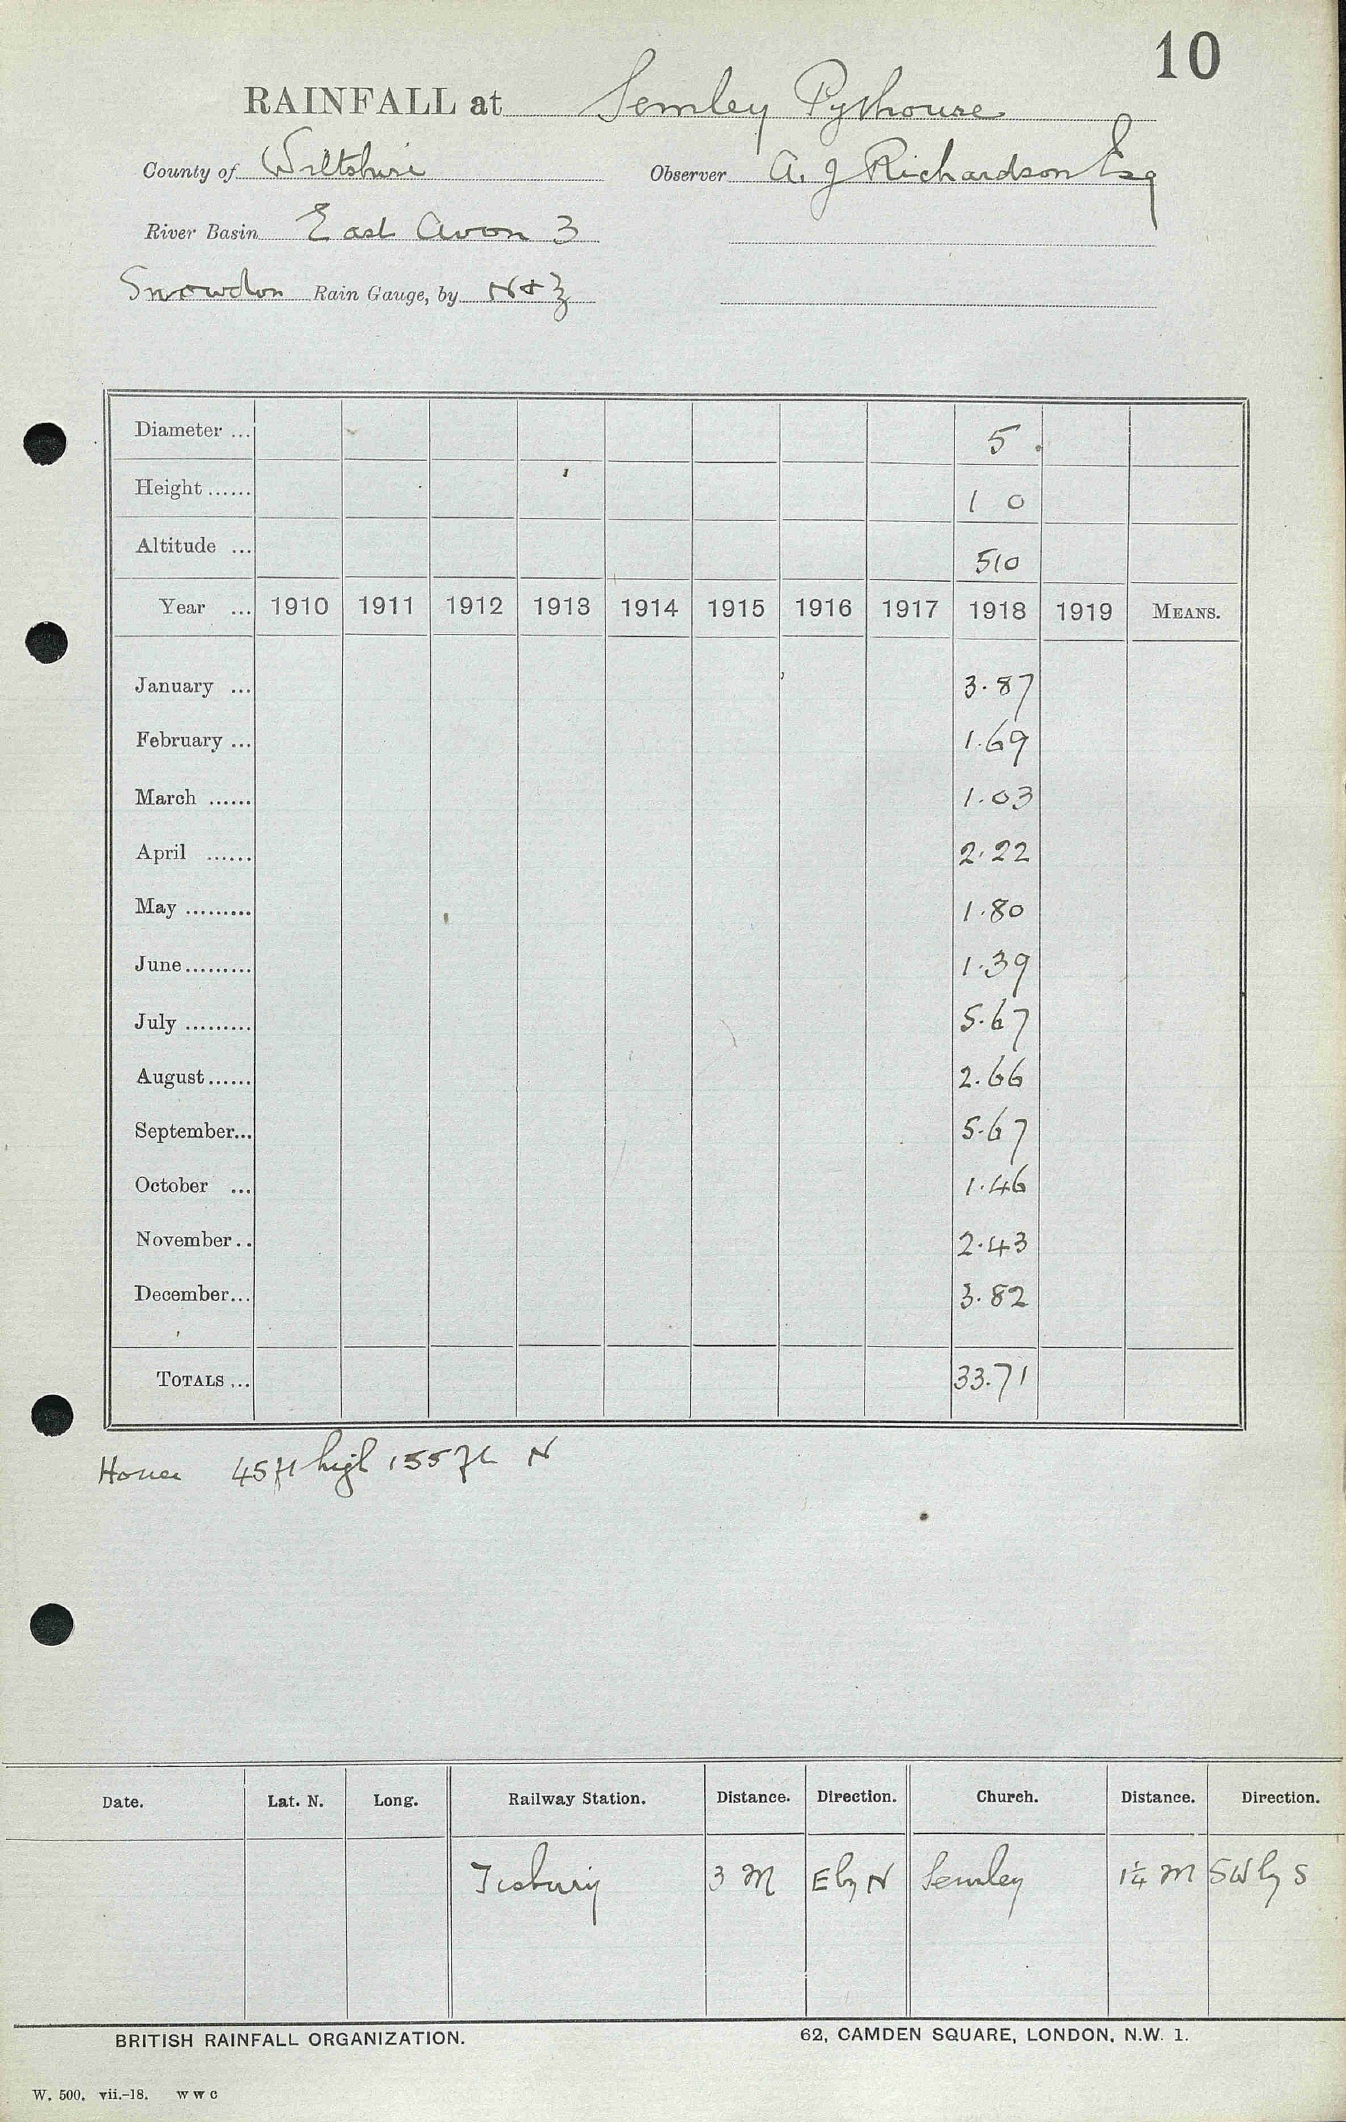 10
RAINFALL at Semley Pythouse
County of Wiltshire Observer A. J Richardson Esq
River Basin East Avon 3
Snowdon Rain Gauge, by N & Z
Diameter ... 5
Height ...... 1 0
Altitude ... 510
Year ... 1910 1911 1912 1913 1914 1915 1916 1917 1918 1919 MEANS.
January ... 3.87
February ... 1.69
March ...... 1.03
April ...... 2.22
May ......... 1.80
June ......... 1.39
July ......... 5.67
August ...... 2.66
September ... 5.67
October ... 1.46
November .. 2.43
December ... 3.82
TOTALS ... 33.71
House 45 ft high 155 ft N
Date. Lat. N. Long. Railway Station. Distance. Direction. Church. Distance. Direction.
Tisbury 3 M E by N Semley 1¼ M SW by S
BRITISH RAINFALL ORGANIZATION. 62, CAMDEN SQUARE, LONDON, N.W. 1.
W. 500. vii.-18. W W C